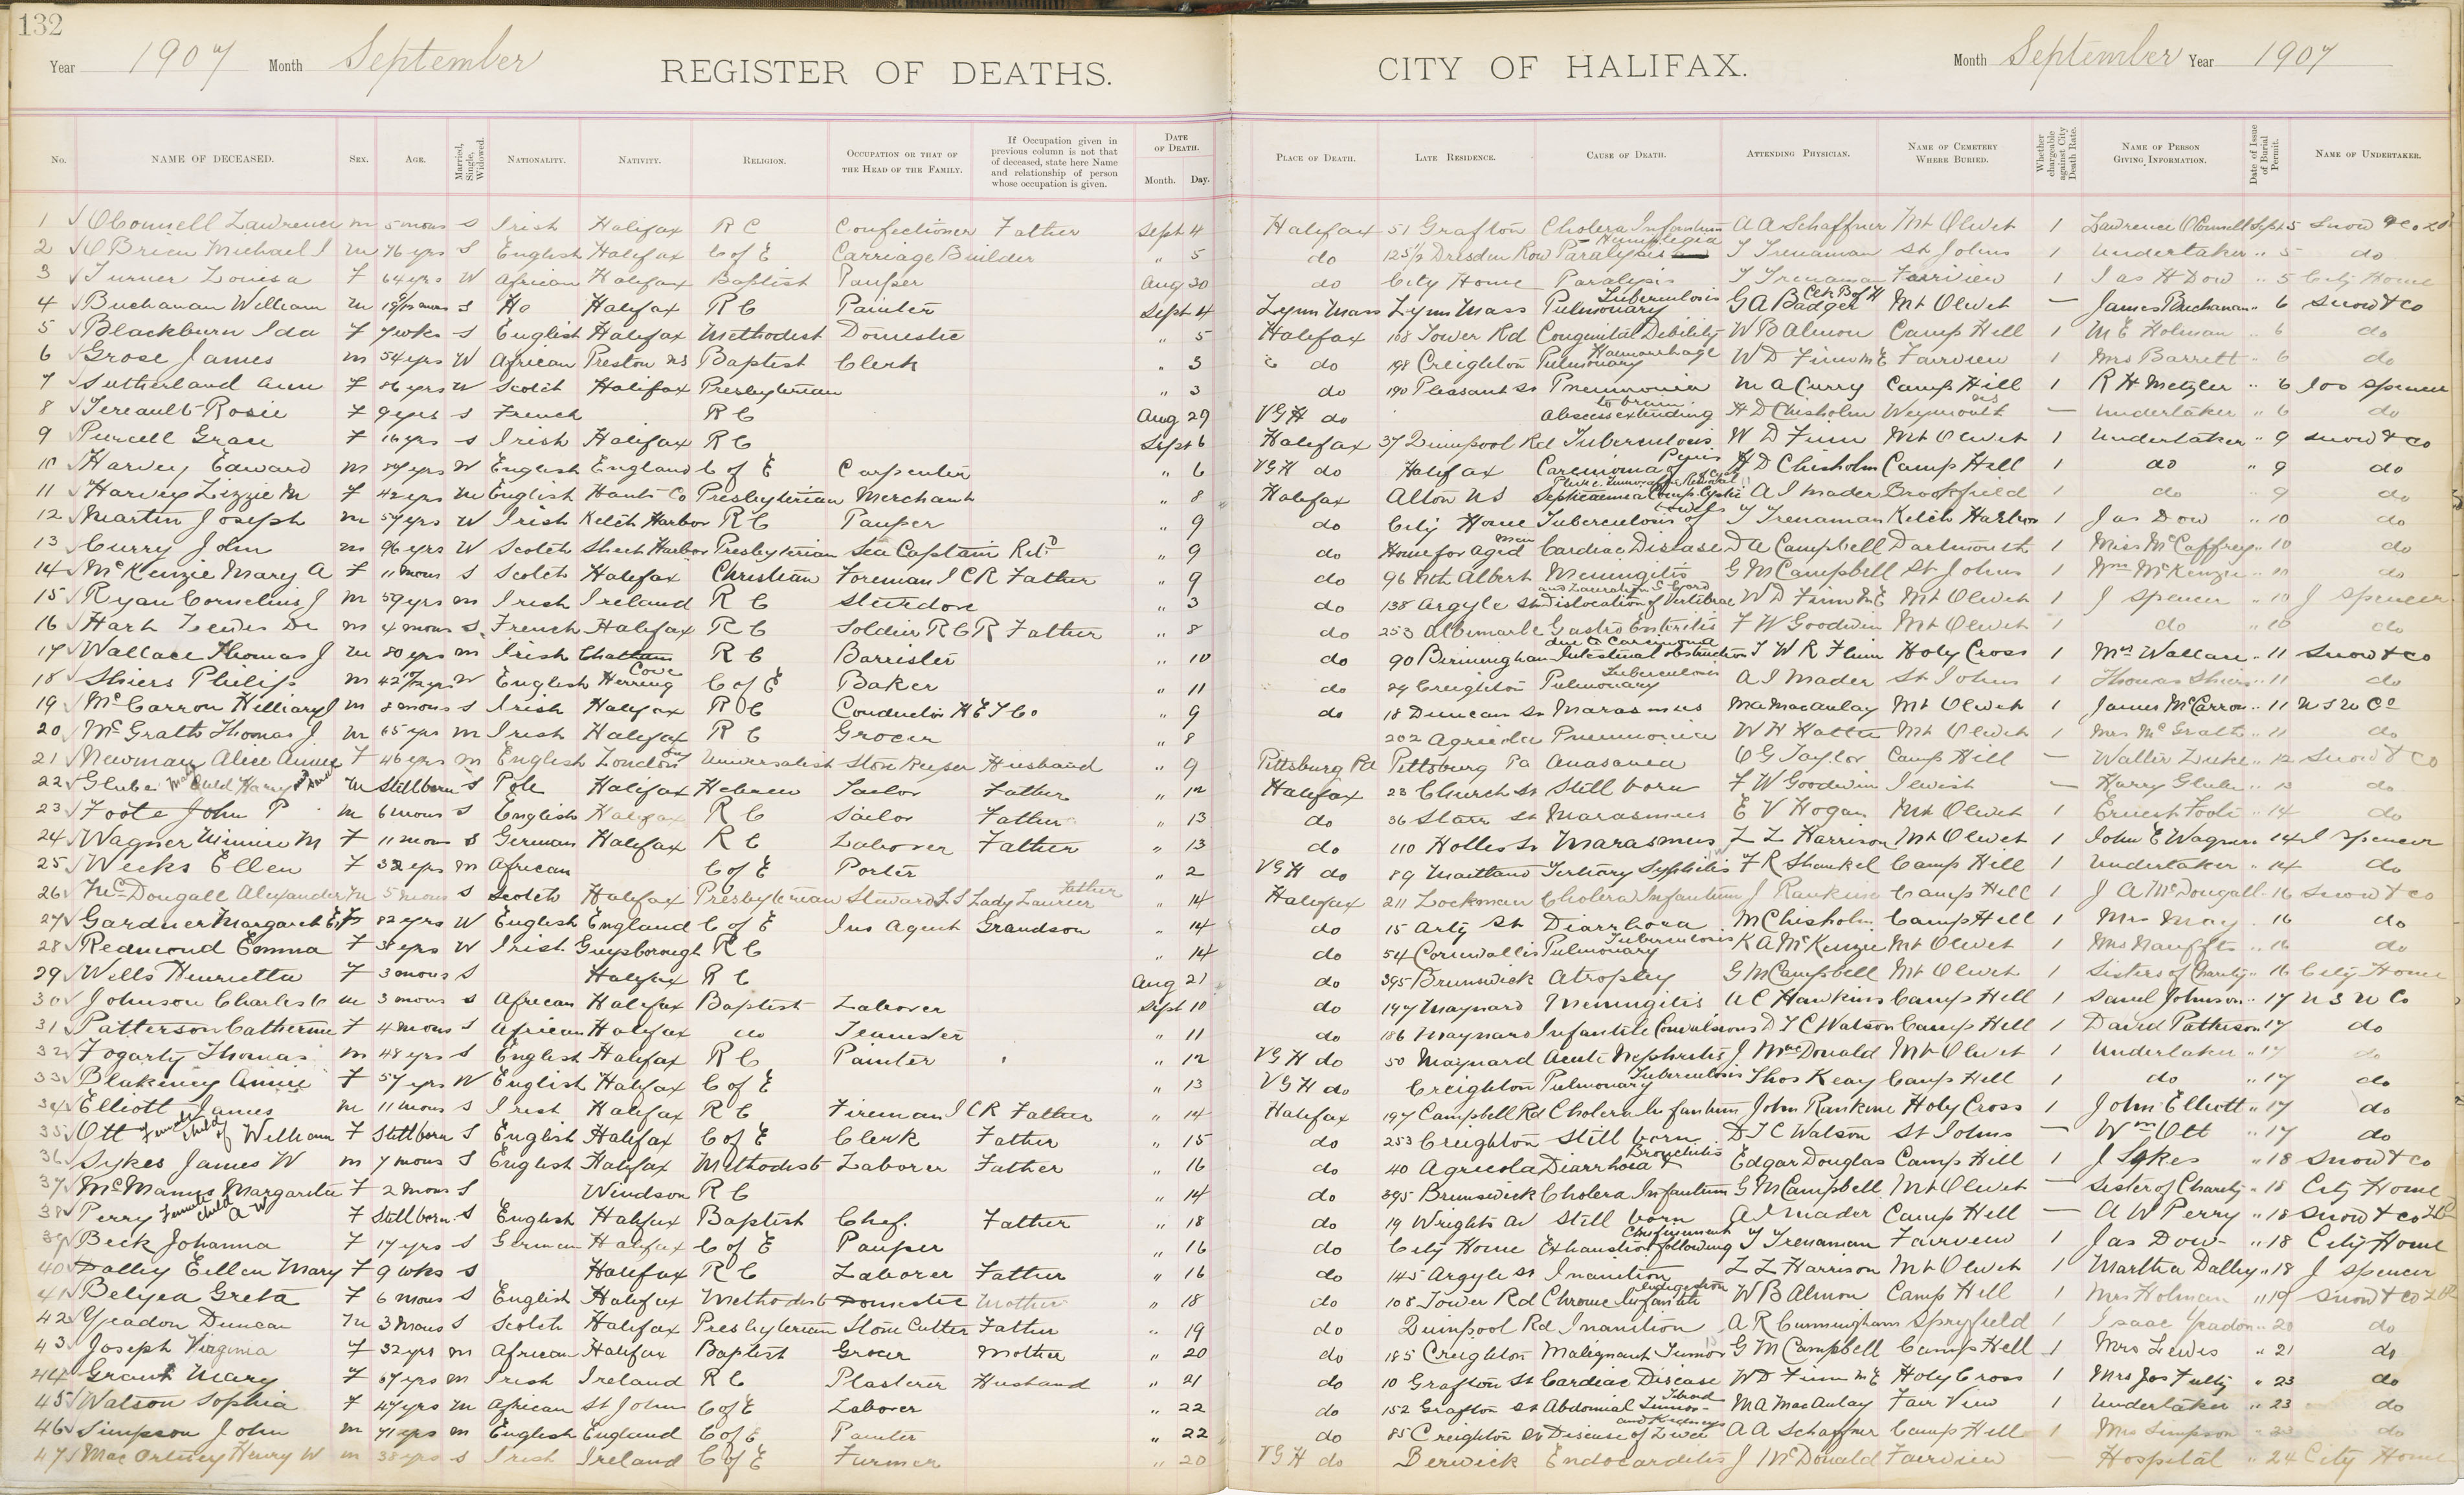 132
Year 1907 Month September REGISTER OF DEATHS. CITY OF HALIFAX. Month September Year 1907
No. NAME OF DECEASED. SEX. AGE. Married, Single, Widowed. NATIONALITY. NATIVITY. RELIGION. OCCUPATION OR THAT OF THE HEAD OF THE FAMILY. If Occupation given in previous column is not that of deceased, state here Name and relationship of person whose occupation is given. DATE OF DEATH. Month. Day. PLACE OF DEATH. LATE RESIDENCE. CAUSE OF DEATH. ATTENDING PHYSICIAN. NAME OF CEMETERY WHERE BURIED. Whether chargeable against City Death Rate. NAME OF PERSON GIVING INFORMATION. Date of Issue of Burial Permit. NAME OF UNDERTAKER.
1 OConnell Lawrence m 5 mons S Irish Halifax R C Confectioner Father Sept 4 Halifax 51 Grafton Cholera Infantum A A Schaffner Mt Olivet 1 Lawrence OConnell Sept 5 Snow & Co
2 O Brien Michael J m 76 yrs S English Halifax C of E Carriage Builder " 5 do 125 1/2 Dresden Row Paralysis Hemiplegia T Trenaman St Johns 1 Undertaker " 5 do
3 Turner Louisa F 64 yrs W African Halifax Baptist Pauper Aug 30 do City Home Paralysis T Trenaman Fairview 1 Jas H Dow " 5 City Home
4 Buchanan William m S Halifax R C Painter Sept 4 Lynn Mass Lynn Mass Pulmonary Tuberculosis G A Badger Clk B of H Mt Olivet — James Buchanan " 6 Snow & Co
5 Blackburn Ida F 7 wks S English Halifax Methodist Domestic " 5 Halifax 108 Tower Rd Congenital Debility W B Almon Camp Hill 1 M E Holman " 6 do
6 Grose James m 54 yrs W African Preston NS Baptist Clerk " 3 do 198 Creighton Pulmonary Haemorrhage W D Finn M E Fairview 1 Mrs Barrett " 6 do
7 Sutherland Ann F 86 yrs W Scotch Halifax Presbyterian " 3 do 190 Pleasant St Pneumonia M A Curry Camp Hill 1 R H Metzler " 6 Jos Spencer
8 Tereault Rosie F 9 yrs S French R C Aug 29 V G H do Abscess extending to brain H D Chisholm Weymouth NS — Undertaker " 6 do
9 Purcell Grace F 16 yrs S Irish Halifax R C Sept 6 Halifax 37 Quinpool Rd Tuberculosis W D Finn Mt Olivet 1 Undertaker " 9 Snow & Co
10 Harvey Edward m W English England C of E Carpenter " 6 V G H do Halifax Carcinoma of Penis H D Chisholm Camp Hill 1 do " 9 do
11 Harvey Lizzie M F 42 yrs m English Hants Co Presbyterian Merchant " 8 Halifax Alton NS Septicaemia A I Mader Brookfield 1 do " 9 do
12 Martin Joseph m 57 yrs W Irish Ketch Harbor R C Pauper " 9 do City Home Tuberculosis of T Trenaman Ketch Harbor 1 Jas Dow " 10 do
13 Curry John m 96 yrs W Scotch Sheet Harbor Presbyterian Sea Captain Retd " 9 do Home for Aged men Cardiac Disease D A Campbell Dartmouth 1 Miss McCaffrey " 10 do
14 McKenzie Mary A F 11 mons S Scotch Halifax Christian Foreman I C R Father " 9 do 96 Nth Albert Meningitis G M Campbell St Johns 1 Wm McKenzie " 10 do
15 Ryan Cornelius J m 59 yrs m Irish Ireland R C Stevedore " 3 do 138 Argyle St Dislocation of Vertebrae and Laceration S Cord W D Finn M E Mt Olivet 1 J Spencer " 10 J Spencer
16 Hart Lewis m 4 mons S French Halifax R C Soldier R C R Father " 8 do 253 Albemarle Gastro Enteritis F W Goodwin Mt Olivet 1 do " 10 do
17 Wallace Thomas J m 80 yrs m Irish Chatham R C Barrister " 10 do 90 Birmingham Intestinal obstruction due to Carcinoma T W R Flinn Holy Cross 1 Mrs Wallace " 11 Snow & Co
18 Shiers Philip m W English Herring Cove C of E Baker " 11 do 29 Creighton Pulmonary Tuberculosis A I Mader St Johns 1 Thomas Shiers " 11 do
19 McCarron Hilliary J m 8 mons S Irish Halifax R C Conductor H E T Co " 9 do 18 Duncan St Marasmus M A Macaulay Mt Olivet 1 James McCarron " 11 N S U Co
20 McGrath Thomas J m 65 yrs m Irish Halifax R C Grocer " 8 202 Agricola Pneumonia W H Hattie Mt Olivet 1 Mrs McGrath " 11 do
21 Newman Alice Annie F 46 yrs m English London Eng Universalist Store Keeper Husband " 9 Pittsburg Pa Pittsburg Pa Anasarca O G Taylor Camp Hill — Walter Luke " 12 Snow & Co
22 Glube Male Child Harry m Stillborn S Pole Halifax Hebrew Tailor Father " 12 Halifax 23 Church St Still born F W Goodwin Jewish — Harry Glube " 13 do
23 Foote John P m 6 mons S English Halifax R C Sailor Father " 13 do 36 Starr St Marasmus E V Hogan Mt Olivet 1 Ernest Foote " 14 do
24 Wagner Minnie M F 11 mons S German Halifax R C Laborer Father " 13 do 110 Hollis St Marasmus L L Harrison Mt Olivet 1 John E Wagner " 14 J Spencer
25 Weeks Ellen F 32 yrs m African C of E Porter " 2 V G H do 89 Maitland Tertiary Syphilis F R Shankel Camp Hill 1 Undertaker " 14 do
26 McDougall Alexander m 5 mons S Scotch Halifax Presbyterian Steward S S Lady Laurier Father " 14 Halifax 211 Lockman Cholera Infantum J Rankine Camp Hill 1 J A McDougall " 16 Snow & Co
27 Gardner Margaret E F 82 yrs W English England C of E Ins Agent Grandson " 14 do 15 Arty St Diarrhoea M Chisholm Camp Hill 1 Mrs May " 16 do
28 Redmond Emma F W Irish Guysborough R C " 14 do 54 Cornwallis Pulmonary Tuberculosis K A McKenzie Mt Olivet 1 Mrs Naufts " 16 do
29 Wells Henrietta F 3 mons S Halifax R C Aug 21 do 395 Brunswick Atrophy G M Campbell Mt Olivet 1 Sisters of Charity " 16 City Home
30 Johnson Charles C m 3 mons S African Halifax Baptist Laborer Sept 10 do 147 Maynard Meningitis A C Hawkins Camp Hill 1 Saml Johnson " 17 N S U Co
31 Patterson Catherine F 4 mons S African Halifax do Teamster " 11 do 186 Maynard Infantile Convulsions D T C Watson Camp Hill 1 David Patterson 17 do
32 Fogarty Thomas m 48 yrs S English Halifax R C Painter " 12 V G H do 50 Maynard Acute Nephritis J MacDonald Mt Olivet 1 Undertaker " 17 do
33 Blakeney Annie F 57 yrs W English Halifax C of E " 13 V G H do Creighton Pulmonary Tuberculosis Thos Keay Camp Hill 1 do " 17 do
34 Elliott James m 11 mons S Irish Halifax R C Fireman I C R Father " 14 Halifax 197 Campbell Rd Cholera Infantum John Rankine Holy Cross 1 John Elliott " 17 do
35 Ott Female Child of William F Stillborn S English Halifax C of E Clerk Father " 15 do 253 Creighton Still born D T C Watson St Johns — Wm Ott " 17 do
36 Sykes James W m 7 mons S English Halifax Methodist Laborer Father " 16 do 40 Agricola Diarrhoea & Bronchitis Edgar Douglas Camp Hill 1 J Sykes " 18 Snow & Co
37 McManus Margaretta F 2 mons S Windsor R C " 14 do 395 Brunswick Cholera Infantum G M Campbell Mt Olivet — Sister of Charity " 18 City Home
38 Perry Female Child A W F Stillborn S English Halifax Baptist Chef. Father " 18 do 19 Wrights Av Still born A I Mader Camp Hill — A W Perry " 18 Snow & Co
39 Beck Johanna F 17 yrs S German Halifax C of E Pauper " 16 do City Home Exhaustion following Confinement T Trenaman Fairview 1 Jas Dow " 18 City Home
40 Dalley Eillen Mary F 9 wks S Halifax R C Laborer Father " 16 do 145 Argyle St Inanition L L Harrison Mt Olivet 1 Martha Dalley " 18 J Spencer
41 Belyea Greta F 6 mons S English Halifax Methodist Domestic Mother " 18 do 108 Tower Rd Chronic Infantile Indigestion W B Almon Camp Hill 1 Mrs Holman " 19 Snow & Co
42 Yeadon Duncan m 3 mons S Scotch Halifax Presbyterian Stone Cutter Father " 19 do Quinpool Rd Inanition A R Cunningham Spryfield 1 Isaac Yeadon " 20 do
43 Joseph Virginia F 32 yrs m African Halifax Baptist Grocer Mother " 20 do 185 Creighton Malignant Tumor G M Campbell Camp Hill 1 Mrs Lewis " 21 do
44 Grant Mary F 67 yrs m Irish Ireland R C Plasterer Husband " 21 do 10 Grafton St Cardiac Disease W D Finn M E Holy Cross 1 Mrs Jos Fultz " 23 do
45 Watson Sophia F 47 yrs m African St John C of E Laborer " 22 do 152 Grafton St Abdominal Tumor Fibroid M A MacAulay Fair View 1 Undertaker " 23 do
46 Simpson John m 71 yrs m English England C of E Painter " 22 do 85 Creighton St Disease of Liver and Kidneys A A Schaffner Camp Hill 1 Mrs Simpson " 23 do
47 Henry W m 38 yrs S Irish Ireland C of E Farmer " 20 V G H do Berwick Endocarditis J McDonald Fairview — Hospital " 24 City Home